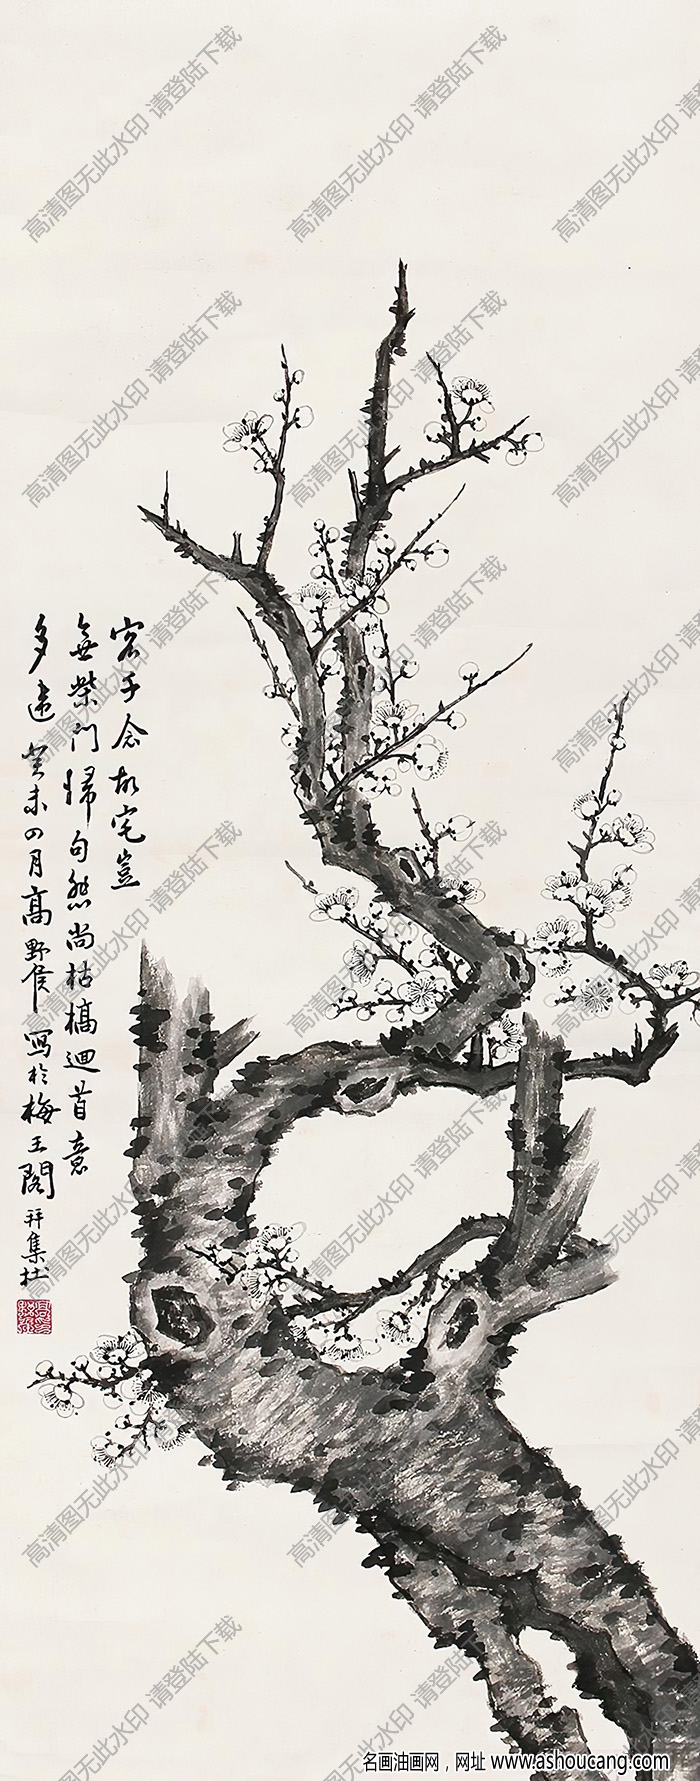 客子念故宅豈
無柴門歸句然尚枯槁迴首意
多違 癸未四月高野侯寫於梅王閣 并集杜
高清图无此水印 请登陆下载
名画油画网，网址 www.ashoucang.com